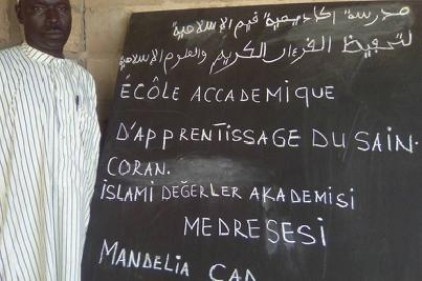 مدرسة اكاديمية قيم الإسلامية
لتحفيظ القرءان الكريم والعلوم الإسلامية
ÉCÔLE ACCADEMIQUE
D'APPRENTISSAGE DU SAIN.
CORAN.
ISLAMI DEĞERLER AKADEMISI
MEDRESESI
MANDELIA CAD